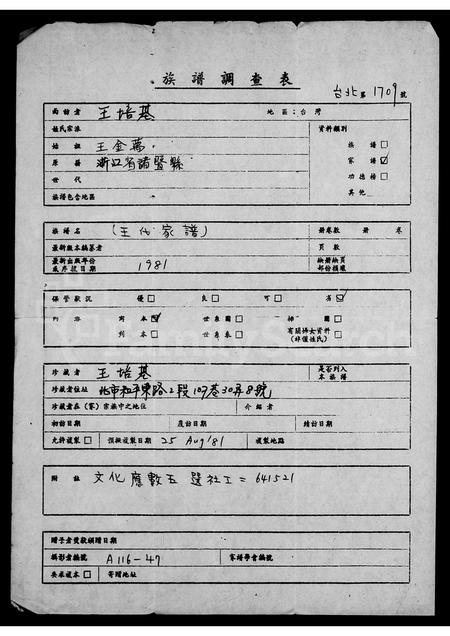 族譜調查表
台北第1709號
面訪者 王培基 地區:台灣
姓氏宗派 資料類別
始祖 王金萬 族譜□
原籍 浙江省諸暨縣 家譜☑
世代 功德榜□
族譜包含地區 其他
族譜名 (王氏家譜) 冊卷數 冊 卷
最新版本編纂者 頁數
最新出版年份 缺冊缺頁
或序跋日期 1981 部份損壞
保管狀況 優□ 良□ 可□
內容
刊本□ 有關婦女資料
(非僅姓氏)
珍藏者 王培基 是否列入
本族譜
珍藏者住址 北市和平東路2段107巷30弄8號
珍藏者在(家)宗族中之地位 介紹者
初訪日期 複訪日期 續訪日期
允許複製□ 預擬複製日期 25 Aug '81 複製地點
附註 文化 應數五 選社工 = 641521
贈予者獎狀頒贈日期
攝影者編號 A116-47 家譜學會編號
要求複本□ 寄贈地址